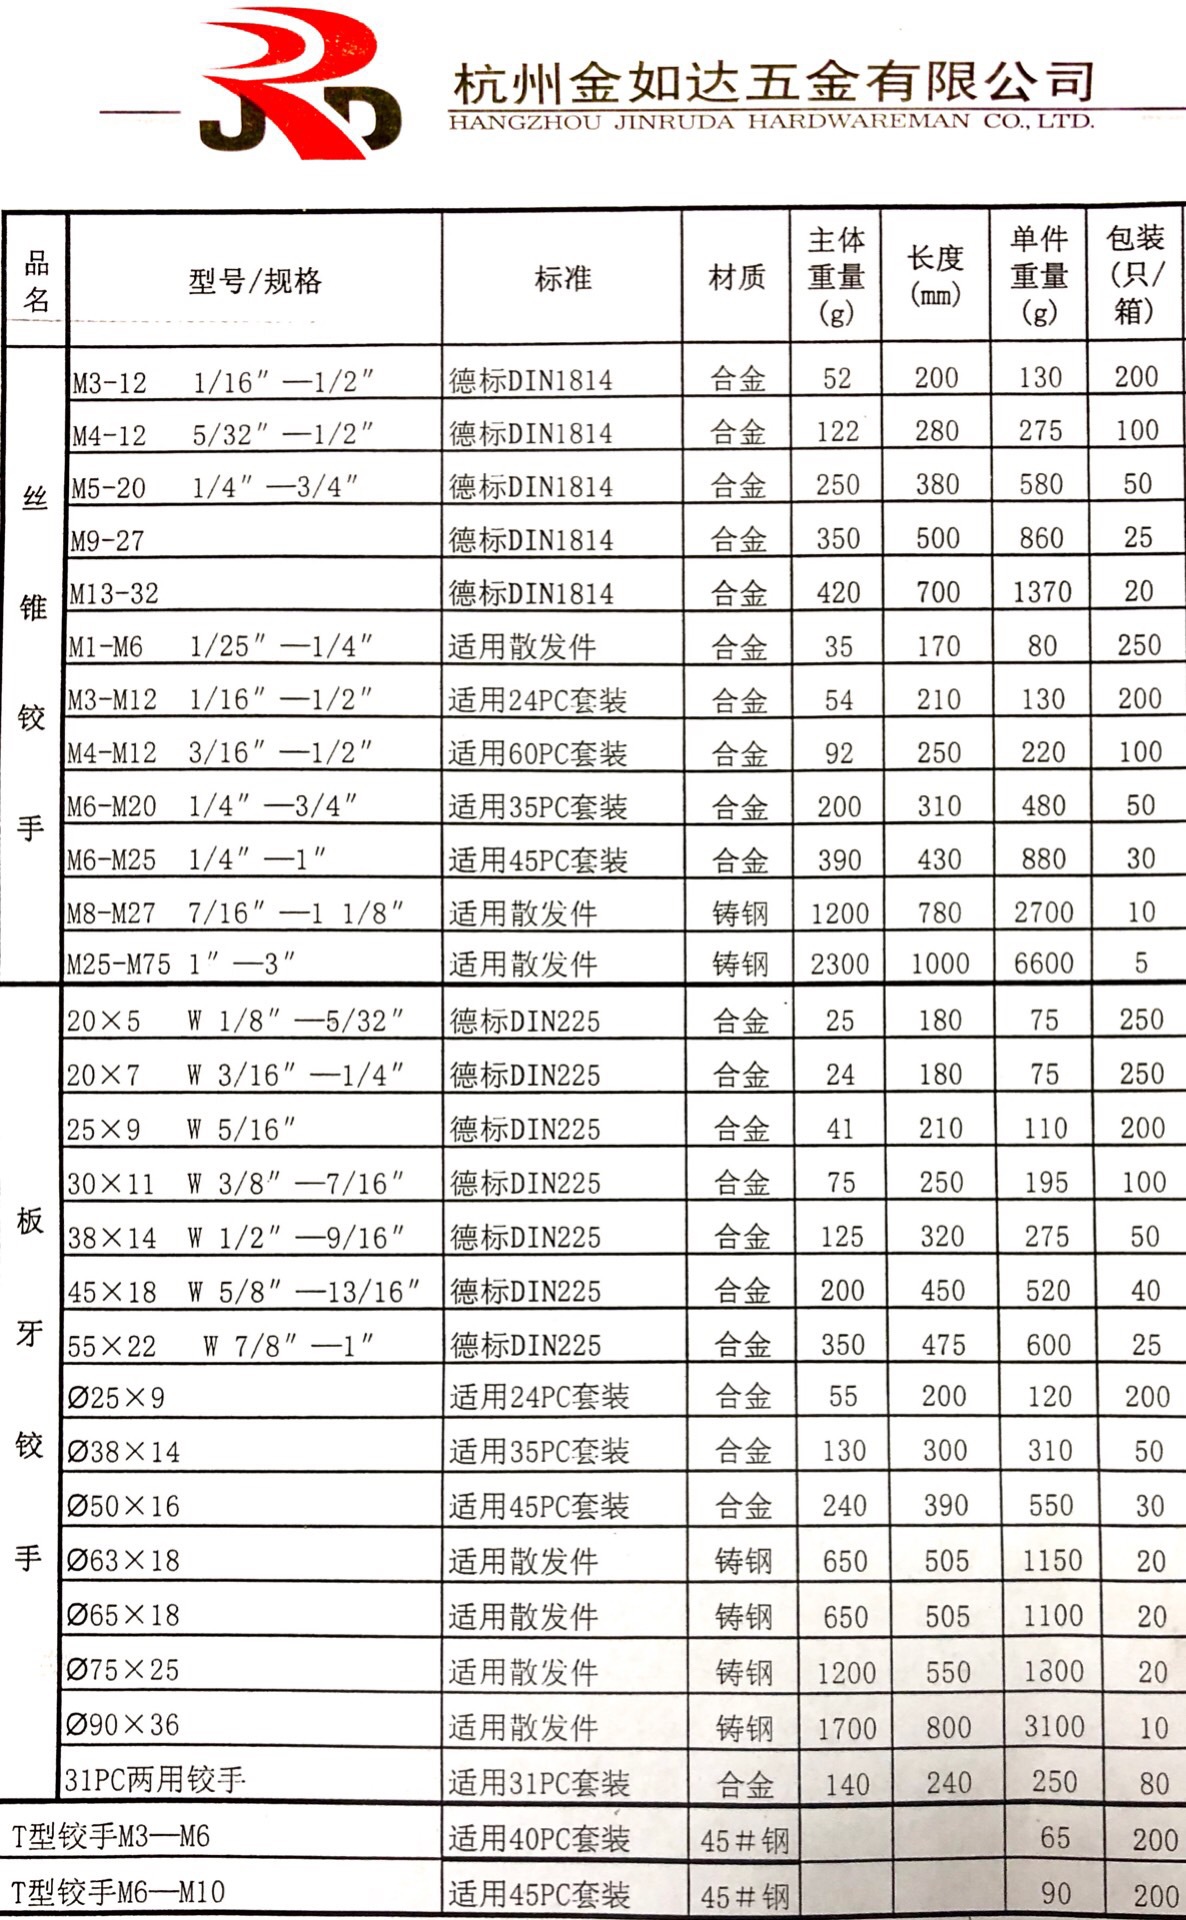 JRD
杭州金如达五金有限公司
HANGZHOU JINRUDA HARDWAREMAN CO., LTD.
品名 型号/规格 标准 材质 主体重量(g) 长度(mm) 单件重量(g) 包装(只/箱)
丝锥铰手
M3-12 1/16″—1/2″ 德标DIN1814 合金 52 200 130 200
M4-12 5/32″—1/2″ 德标DIN1814 合金 122 280 275 100
M5-20 1/4″—3/4″ 德标DIN1814 合金 250 380 580 50
M9-27 德标DIN1814 合金 350 500 860 25
M13-32 德标DIN1814 合金 420 700 1370 20
M1-M6 1/25″—1/4″ 适用散发件 合金 35 170 80 250
M3-M12 1/16″—1/2″ 适用24PC套装 合金 54 210 130 200
M4-M12 3/16″—1/2″ 适用60PC套装 合金 92 250 220 100
M6-M20 1/4″—3/4″ 适用35PC套装 合金 200 310 480 50
M6-M25 1/4″—1″ 适用45PC套装 合金 390 430 880 30
M8-M27 7/16″—1 1/8″ 适用散发件 铸钢 1200 780 2700 10
M25-M75 1″—3″ 适用散发件 铸钢 2300 1000 6600 5
板牙铰手
20×5 W 1/8″—5/32″ 德标DIN225 合金 25 180 75 250
20×7 W 3/16″—1/4″ 德标DIN225 合金 24 180 75 250
25×9 W 5/16″ 德标DIN225 合金 41 210 110 200
30×11 W 3/8″—7/16″ 德标DIN225 合金 75 250 195 100
38×14 W 1/2″—9/16″ 德标DIN225 合金 125 320 275 50
45×18 W 5/8″—13/16″ 德标DIN225 合金 200 450 520 40
55×22 W 7/8″—1″ 德标DIN225 合金 350 475 600 25
Ø25×9 适用24PC套装 合金 55 200 120 200
Ø38×14 适用35PC套装 合金 130 300 310 50
Ø50×16 适用45PC套装 合金 240 390 550 30
Ø63×18 适用散发件 铸钢 650 505 1150 20
Ø65×18 适用散发件 铸钢 650 505 1100 20
Ø75×25 适用散发件 铸钢 1200 550 1800 20
Ø90×36 适用散发件 铸钢 1700 800 3100 10
31PC两用铰手 适用31PC套装 合金 140 240 250 80
T型铰手M3—M6 适用40PC套装 45#钢 65 200
T型铰手M6—M10 适用45PC套装 45#钢 90 200